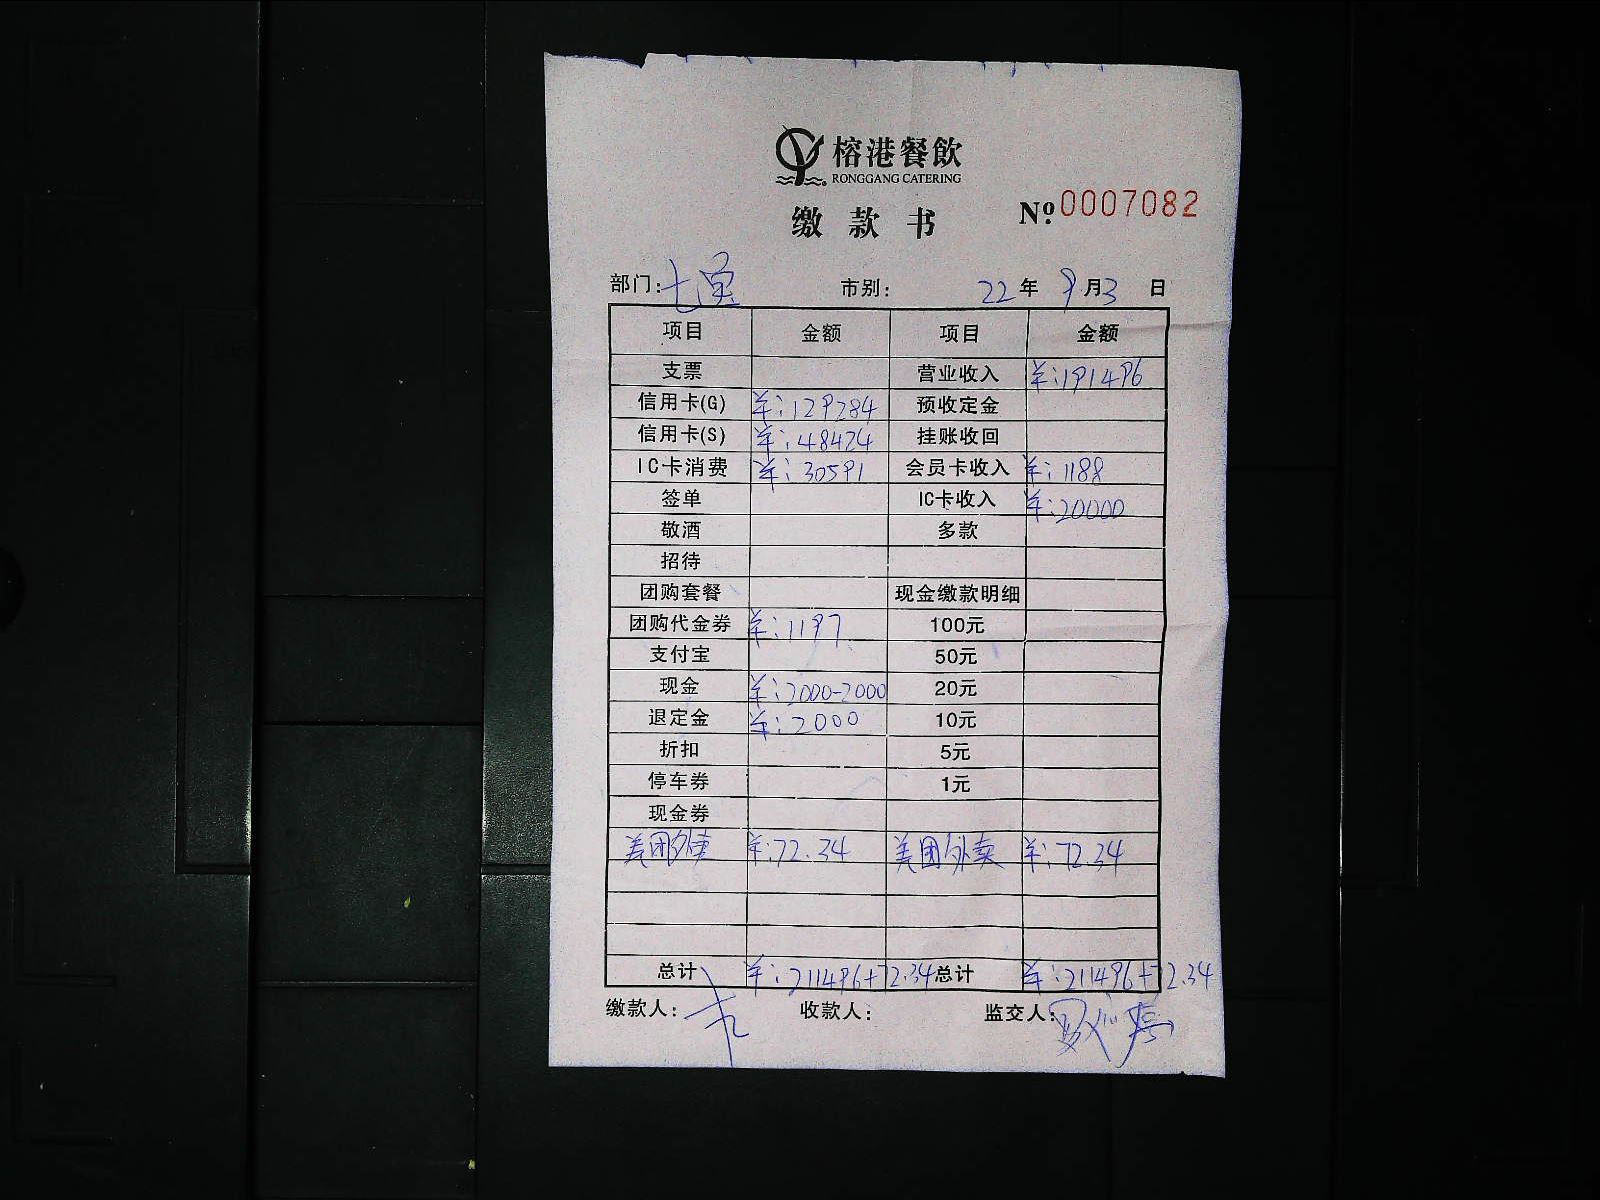 榕港餐飲
RONGGANG CATERING
缴款书 №0007082
部门: 市别: 22年9月3日
项目 金额 项目 金额
支票 营业收入 羊:191496
信用卡(G) 羊:129284 预收定金
信用卡(S) 羊:48424 挂账收回
IC卡消费 羊:30591 会员卡收入 羊:1188
签单 IC卡收入 羊:20000
敬酒 多款
招待
团购套餐 现金缴款明细
团购代金券 羊:1197 100元
支付宝 50元
现金 羊:2000-2000 20元
退定金 羊:2000 10元
折扣 5元
停车券 1元
现金券
美团外卖 羊:72.34 美团外卖 羊:72.34
总计 羊:211496+72.34 总计 羊:211496+72.34
缴款人: 收款人: 监交人: